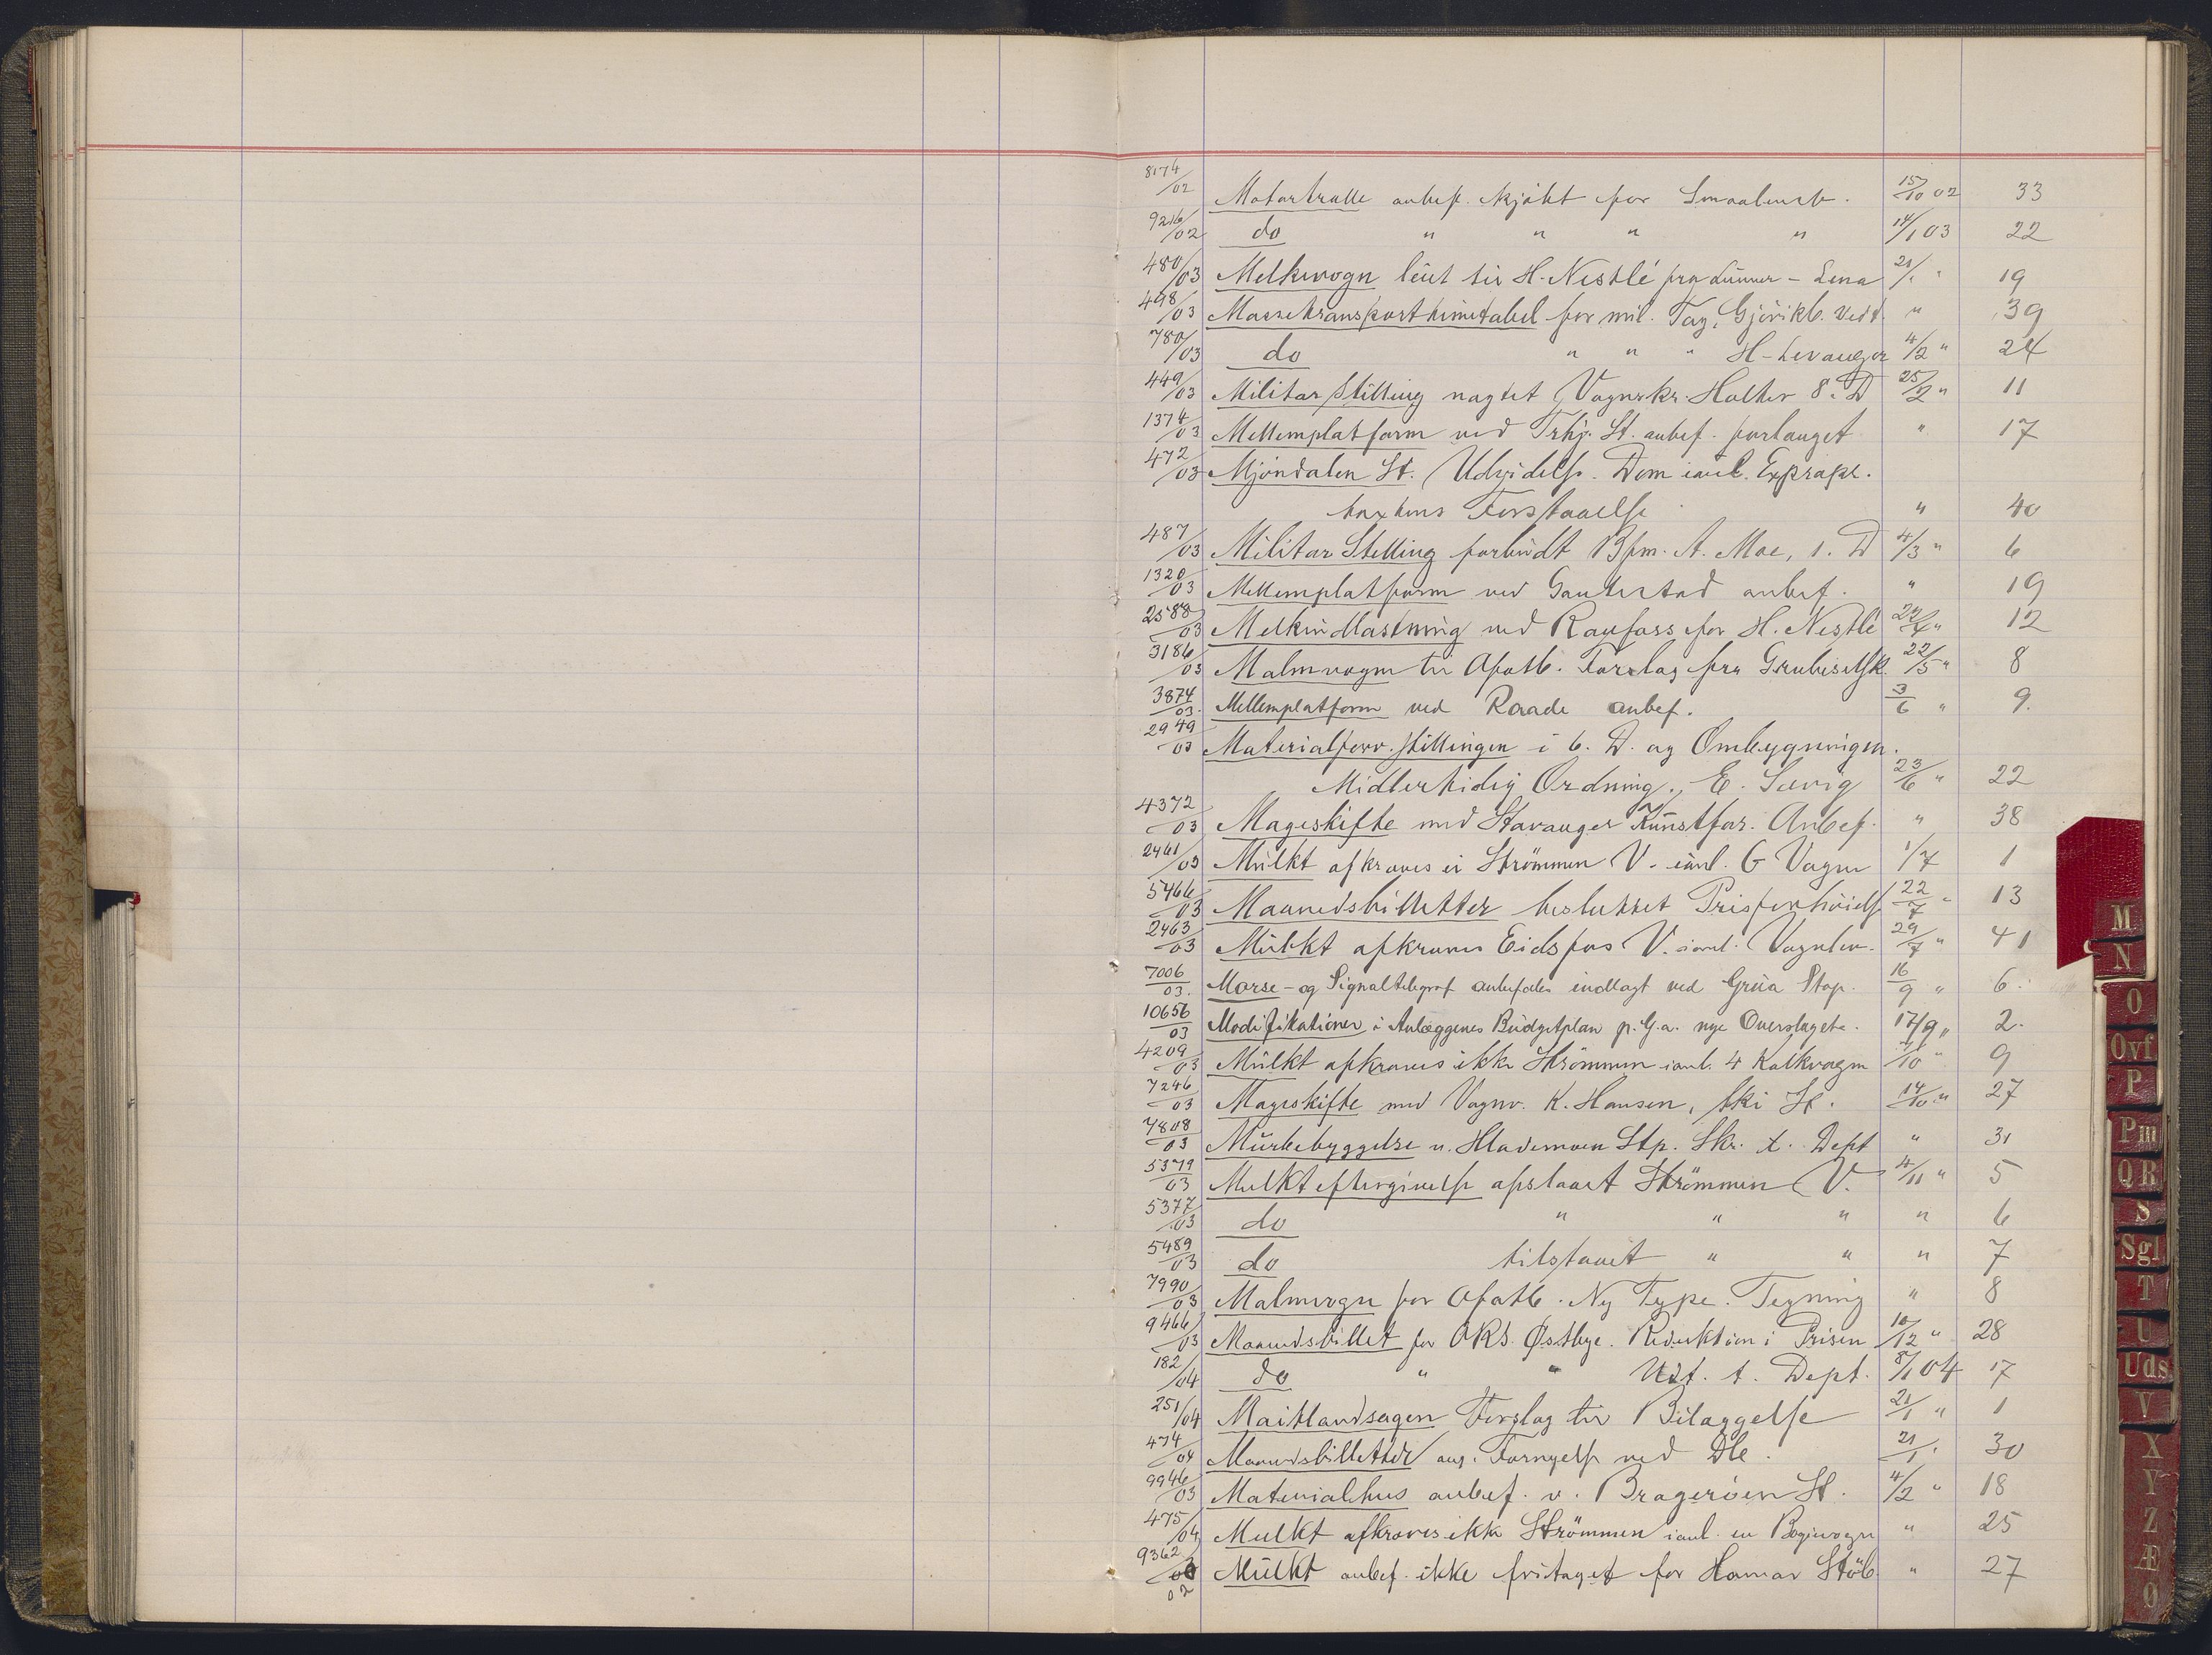 8174/02 Motortralle anbef. kjøbt for Smaalensb. 15/10 02 33
9216/02 do " " " " 14/1 03 22
480/03 Melkevogn leiet til H. Nestlé fra Lunner - Lena 21/1 " 19
498/03 Massetransporttimetabel for mil. Tog, Gjövikb. Vedt. " 39
780/03 do " " " H-Levanger 4/2 " 24
449/03 Militær Stilling nægtet Vognskr. Halter 8. D 25/2 " 11
1374/03 Mellemplatform ved Trhj. St. anbef. forlænget " 17
472/03 Mjöndalen St. Udvidelse. Dom ianl. Expropr.
takstens Forstaaelse " 40
487/03 Militær Stilling forbudt Bfm. A. Moe, 1. D 4/3 " 6
1320/03 Mellemplatform ved Gautestad anbef. " 19
2588/03 Melkindlastning ved Raufoss for H. Nestlé 24/4 " 12
3186/03 Malmvogne til Ofotb. Forslag fra Grubeselsk. 22/5 " 8
3874/03. Mellemplatform ved Raade anbef. 3/6 " 9.
2949/03 Materialforv. stillingen i 6. D. og Ombygningen.
Midlertidig Ordning. E. Sævig 23/6 " 22
4372/03 Mageskifte med Stavanger Kunstfor. Anbef. " 38
2461/03 Mulkt afkræves ei Strömmen V. ianl. 6 Vogne 1/7 1
5466/03 Maanedsbilletter besluttet Prisforhöielse 22/7 " 13
2463/03 Mulkt afkræves Eidsfos V. ianl. Vognlev. 29/7 " 41
7006/03. Morse- og Signaltelegraf anbefales indlagt ved Grua Stop. 16/9 " 6.
10656/03 Modifikationer i Anlæggenes Budgetplan p. G. a. nye Overslag etc. 17/9 " 2.
4209/03 Mulkt afkræves ikke Strömmen ianl. 4 Kalkvogne /10 " 9
7246/03 Mageskifte med Vognv. K. Hansen, Ski St. 14/10 " 27
7808/03 Murbebyggelse v. Hlademoen Stp. Skr. t. Dept " 31
5379/03 Mulkt eftergivelse afslaaet Strömmen V. 4/11 " 5
5377/03 do " " " " 6
5489/03 do tilstaaet " " " 7
7990/03 Malmvogne for Ofotb. Ny Type. Tegning " 8
9466/03 Maanedsbillet for OKS. Østbye. Reduktion i Prisen 10/12 " 28
182/04 do " " Udt. t. Dept. 8/1 04 17
251/04 Maitlandsagen Forslag til Bilæggelse 21/1 " 1
474/04 Maanedsbilletter ang. Fornyelse ved Dle. 21/1 " 30
9946/03 Materialhus anbef. v. Brageröen St. 4/2 " 18
475/04 Mulkt afkræves ikke Strömmen ianl. en Bogievogn " 25
9362/02 Mulkt anbef. ikke fritaget for Hamar Stöb. " 27
M
N
O
Ovf
P
Pm
QR
S
Sgl
T
U
Uds
V
X
Y
Z
Æ
Ø